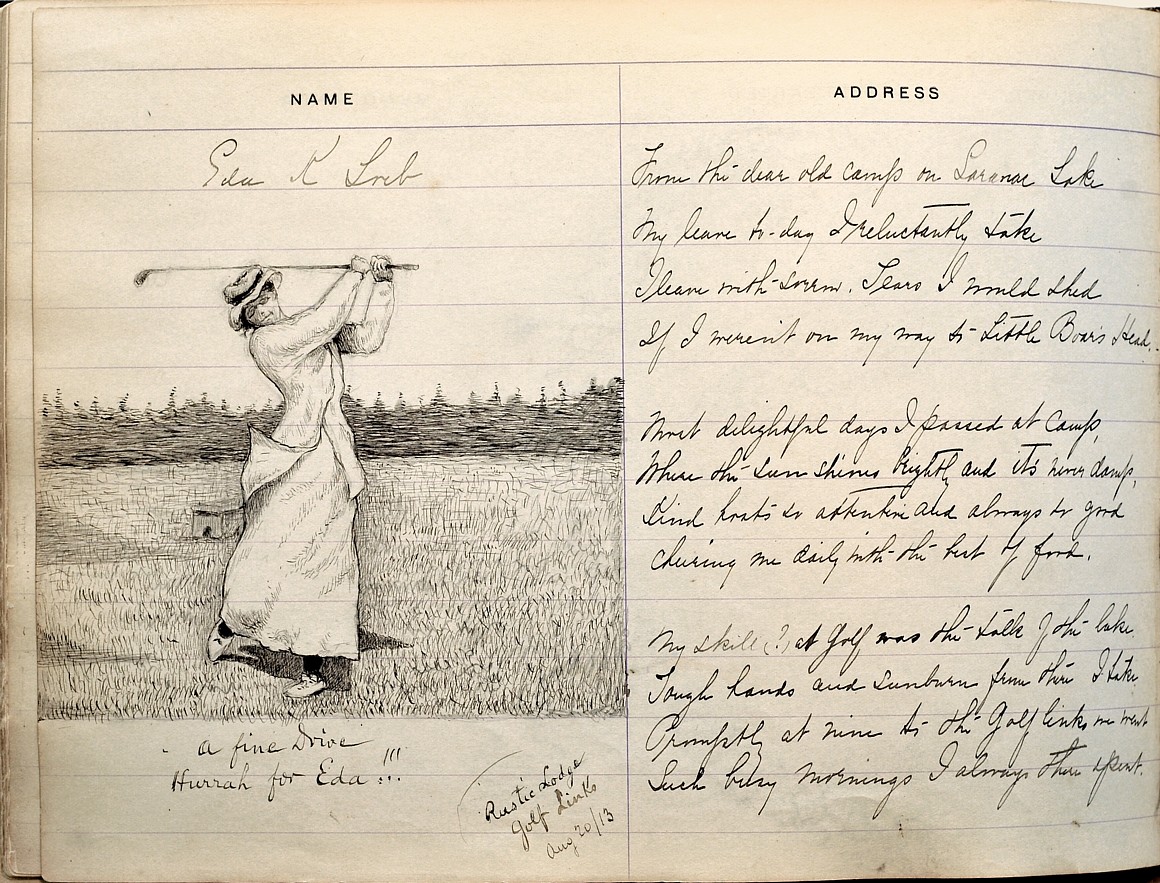 NAME
ADDRESS
Eda K Loeb
From the dear old camp on Saranac Lake
My leave to-day I reluctantly take
I leave with sorrow. Tears I would shed
If I weren't on my way to Little Boar's Head.
Most delightful days I passed at Camp,
Where the sun shines brightly and its never damp,
Kind hosts so attentive and always so good
Cheering me daily with the best of food.
My skill (?) at Golf was the talk of the lake
Tough hands and sunburn from there I take
Promptly at nine to the Golf links we went
Such busy mornings I always there spent.
A fine Drive
Hurrah for Eda !!!
Rustic Lodge
Golf Links
Aug 20/13